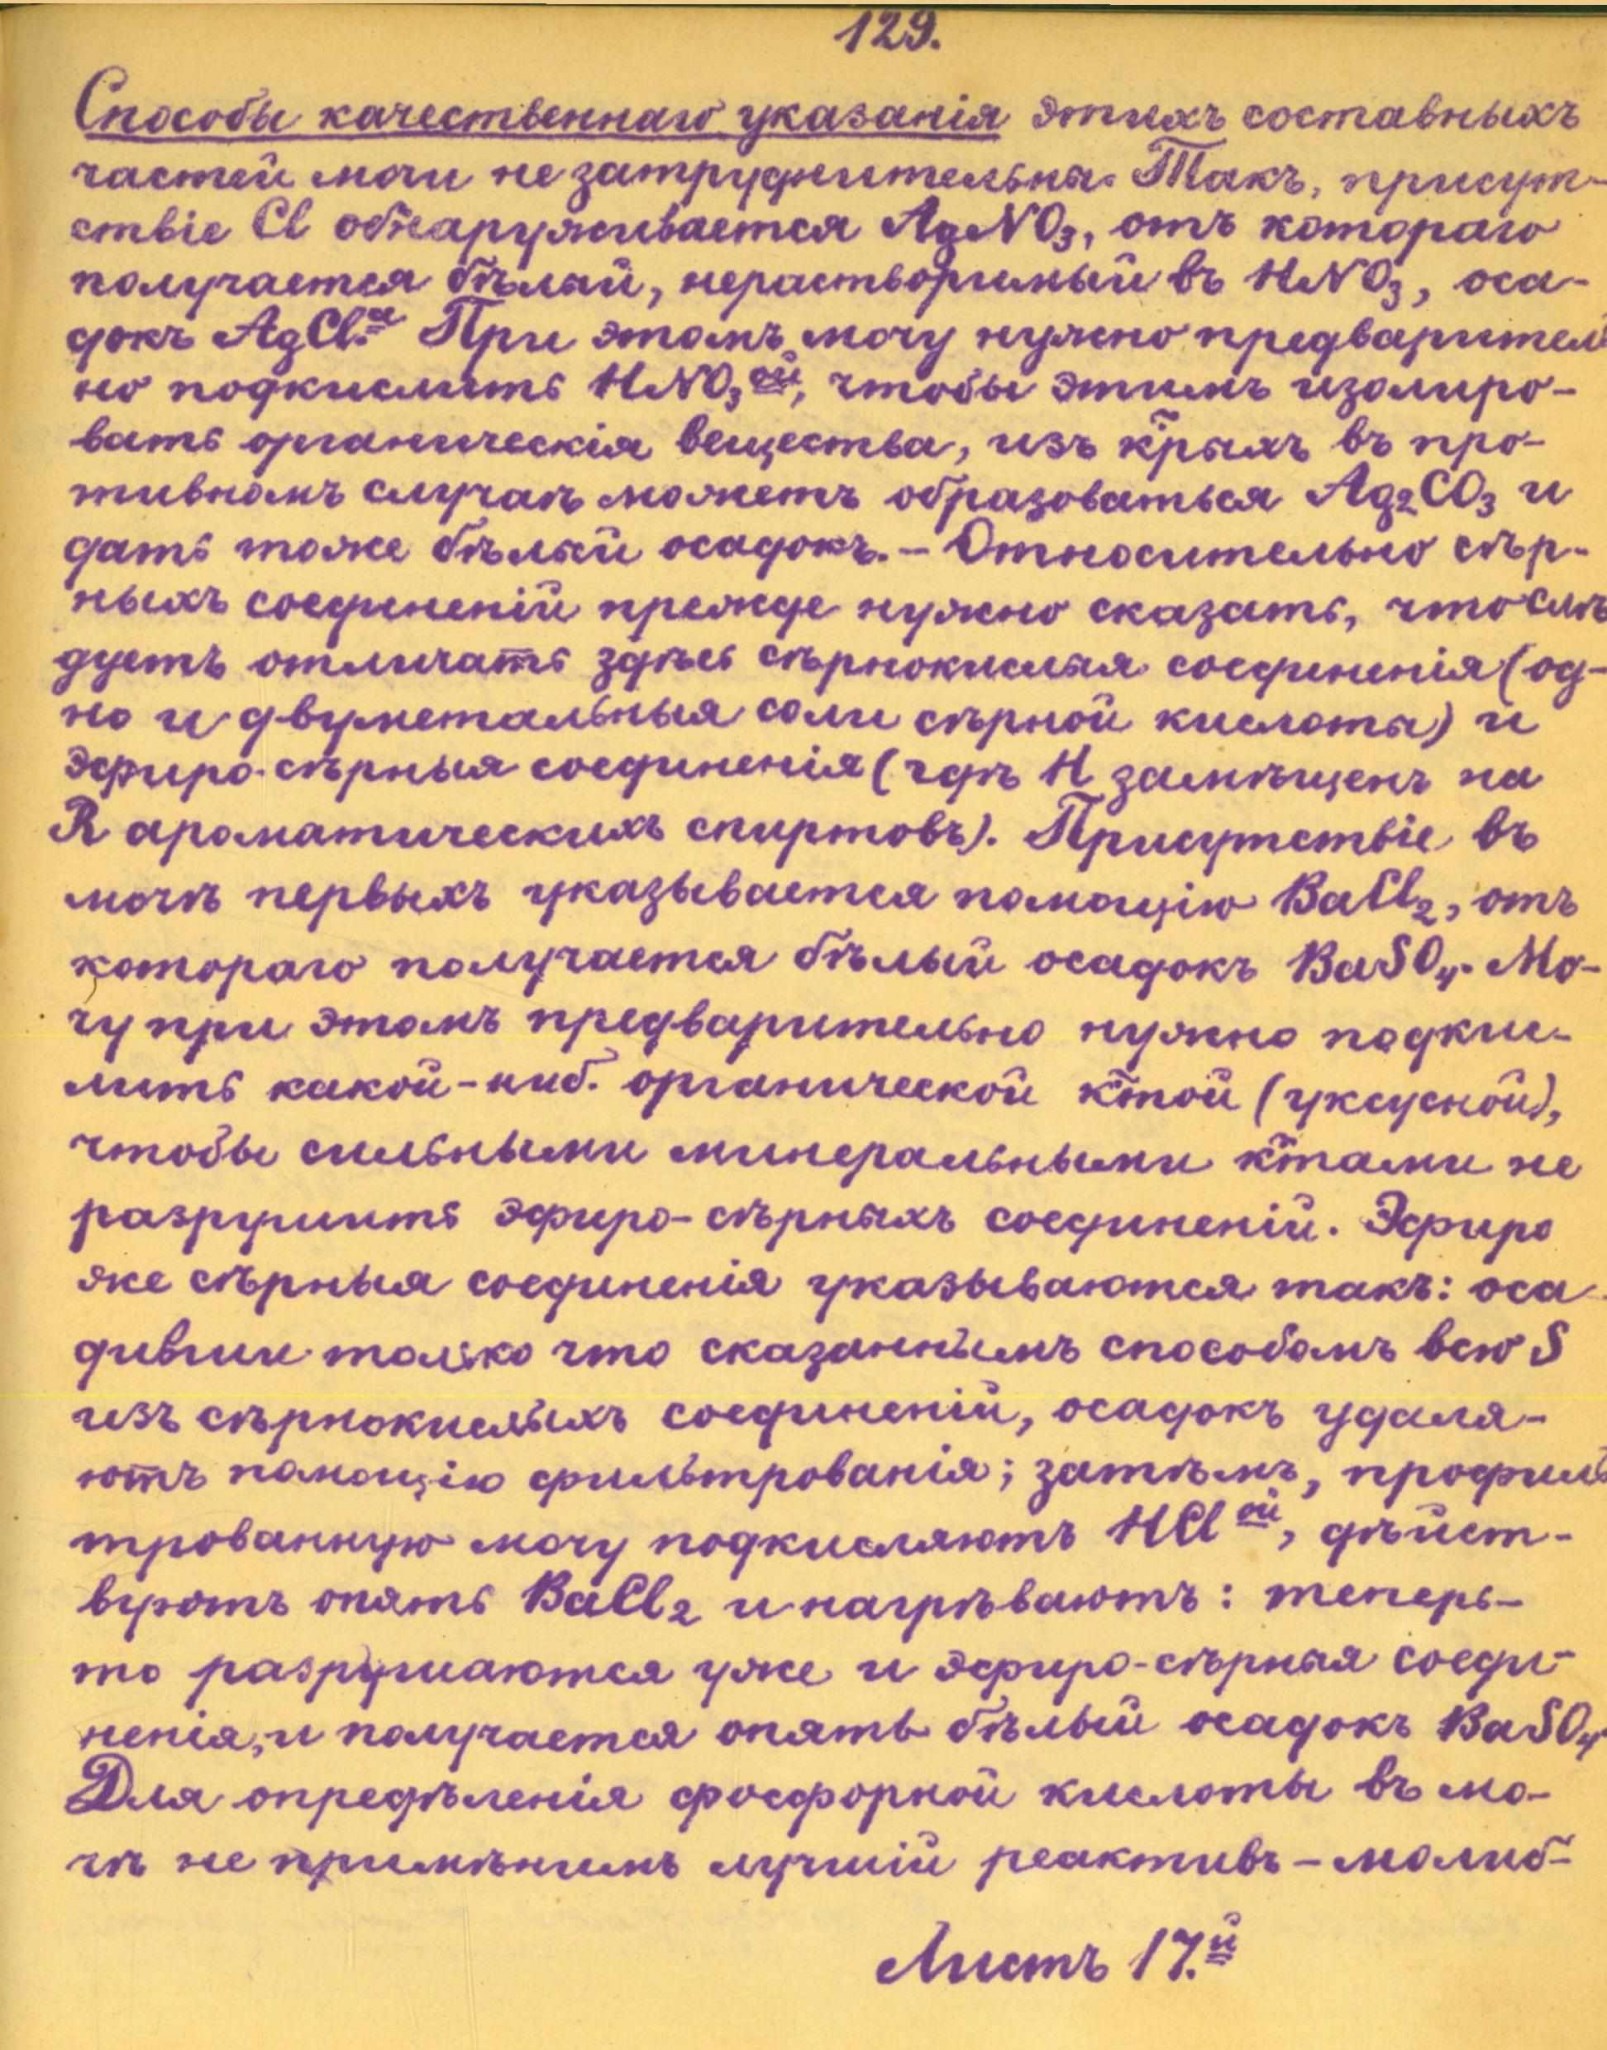 129.
Способы качественнаго указанія этихъ составныхъ
частей мочи не затруднительны. Такъ, присут-
ствіе Cl обнаруживается AgNO₃, отъ котораго
получается бѣлый, нерастворимый въ HNO₃, оса-
докъ AgCl.ᵃ При этомъ мочу нужно предварител
но подкислить HNO₃ᵒᶦ̆, чтобы этимъ изолиро-
вать органическія вещества, изъ к̃рыхъ въ про-
тивномъ случаѣ можетъ образоваться Ag₂CO₃ и
дать тоже бѣлый осадокъ. – Относительно сѣр-
ныхъ соединеній прежде нужно сказать, что слѣ
дуетъ отличать здѣсь сѣрнокислыя соединенія (од-
но и двуметальныя соли сѣрной кислоты) и
эфиро-сѣрныя соединенія (гдѣ H замѣщенъ на
R ароматическихъ спиртовъ). Присутствіе въ
мочѣ первыхъ указывается помощію BaCl₂, отъ
котораго получается бѣлый осадокъ BaSO₄. Мо-
чу при этомъ предварительно нужно подки-
лить какой-ниб. органической к̃той (уксусной),
чтобы сильными минеральными к̃тами не
разрушить эфиро-сѣрныхъ соединеній. Эфиро
же сѣрныя соединенія указываются такъ: оса
дивши только что сказаннымъ способомъ всю S
изъ сѣрнокислыхъ соединеній, осадокъ удаля-
ютъ помощію фильтрованія; затѣмъ, профиль
трованную мочу подкисляютъ HCl ой, дѣйст-
вуютъ опять BaCl₂ и нагрѣваютъ: теперь-
то разрушаются уже и эфиро-сѣрныя соеди-
ненія, и получается опять бѣлый осадокъ BaSO₄
Для опредѣленія фосфорной кислоты въ мо-
чѣ не примѣнимъ лучшій реактивъ – молиб-
Листъ 17.й